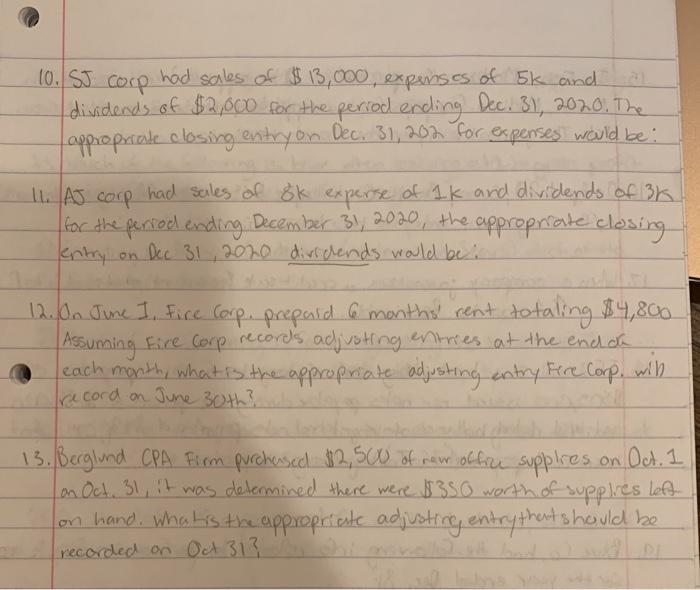 10. SJ corp had sales of $13,000, expenses of 5k and
dividends of $2,000 for the period ending Dec. 31, 2020. The
appropriate closing entry on Dec. 31, 202 for expenses would be:
11. AJ corp had sales of 8k expense of 1k and dividends of 3k
for the period ending December 31, 2020, the appropriate closing
entry on Dec 31, 2020 dividends would be:
12. On June 1, Fire Corp. prepaid 6 months' rent totaling $4,800
Assuming Fire Corp records adjusting entries at the end of
each month, what is the appropriate adjusting entry Fire Corp. will
record on June 30th?
13. Berglund CPA Firm purchased $2,500 of new office supplies on Oct. 1
on Oct. 31, it was determined there were $350 worth of supplies left
on hand. What is the appropriate adjusting entry that should be
recorded on Oct 31?